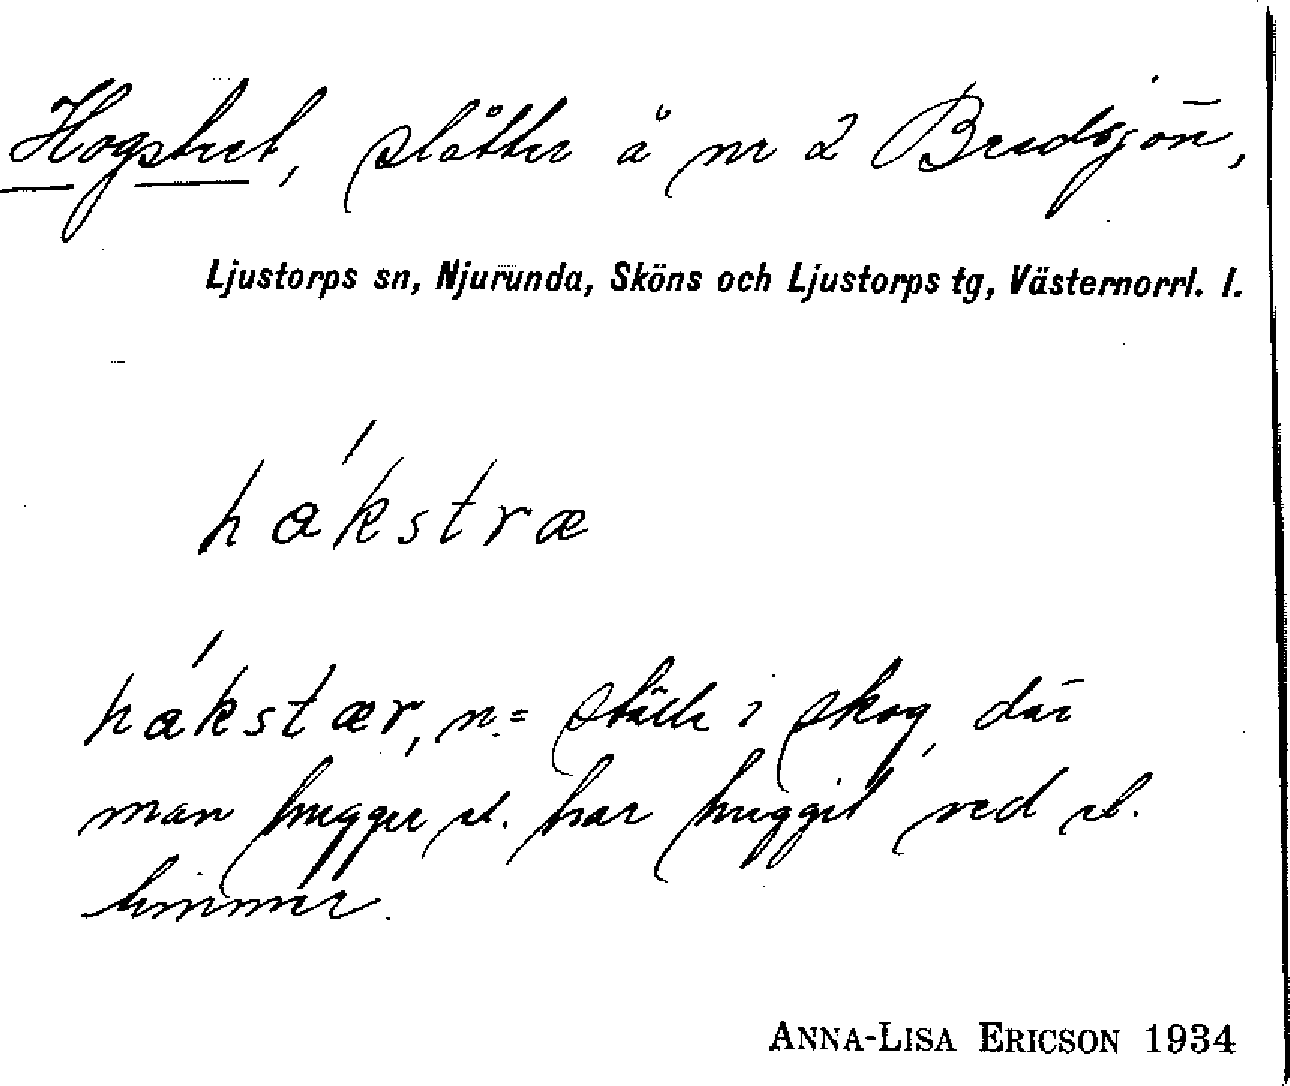 Hogstret, slåtter å nr 2 Bredsjön,
Ljustorps sn, Njurunda, Sköns och Ljustorps tg, Västernorrl. l.
hákstræ
hákstær, n. = ställe i skog, där
man hugger el. har huggit ved el.
timmer.
ANNA-LISA ERICSON 1934